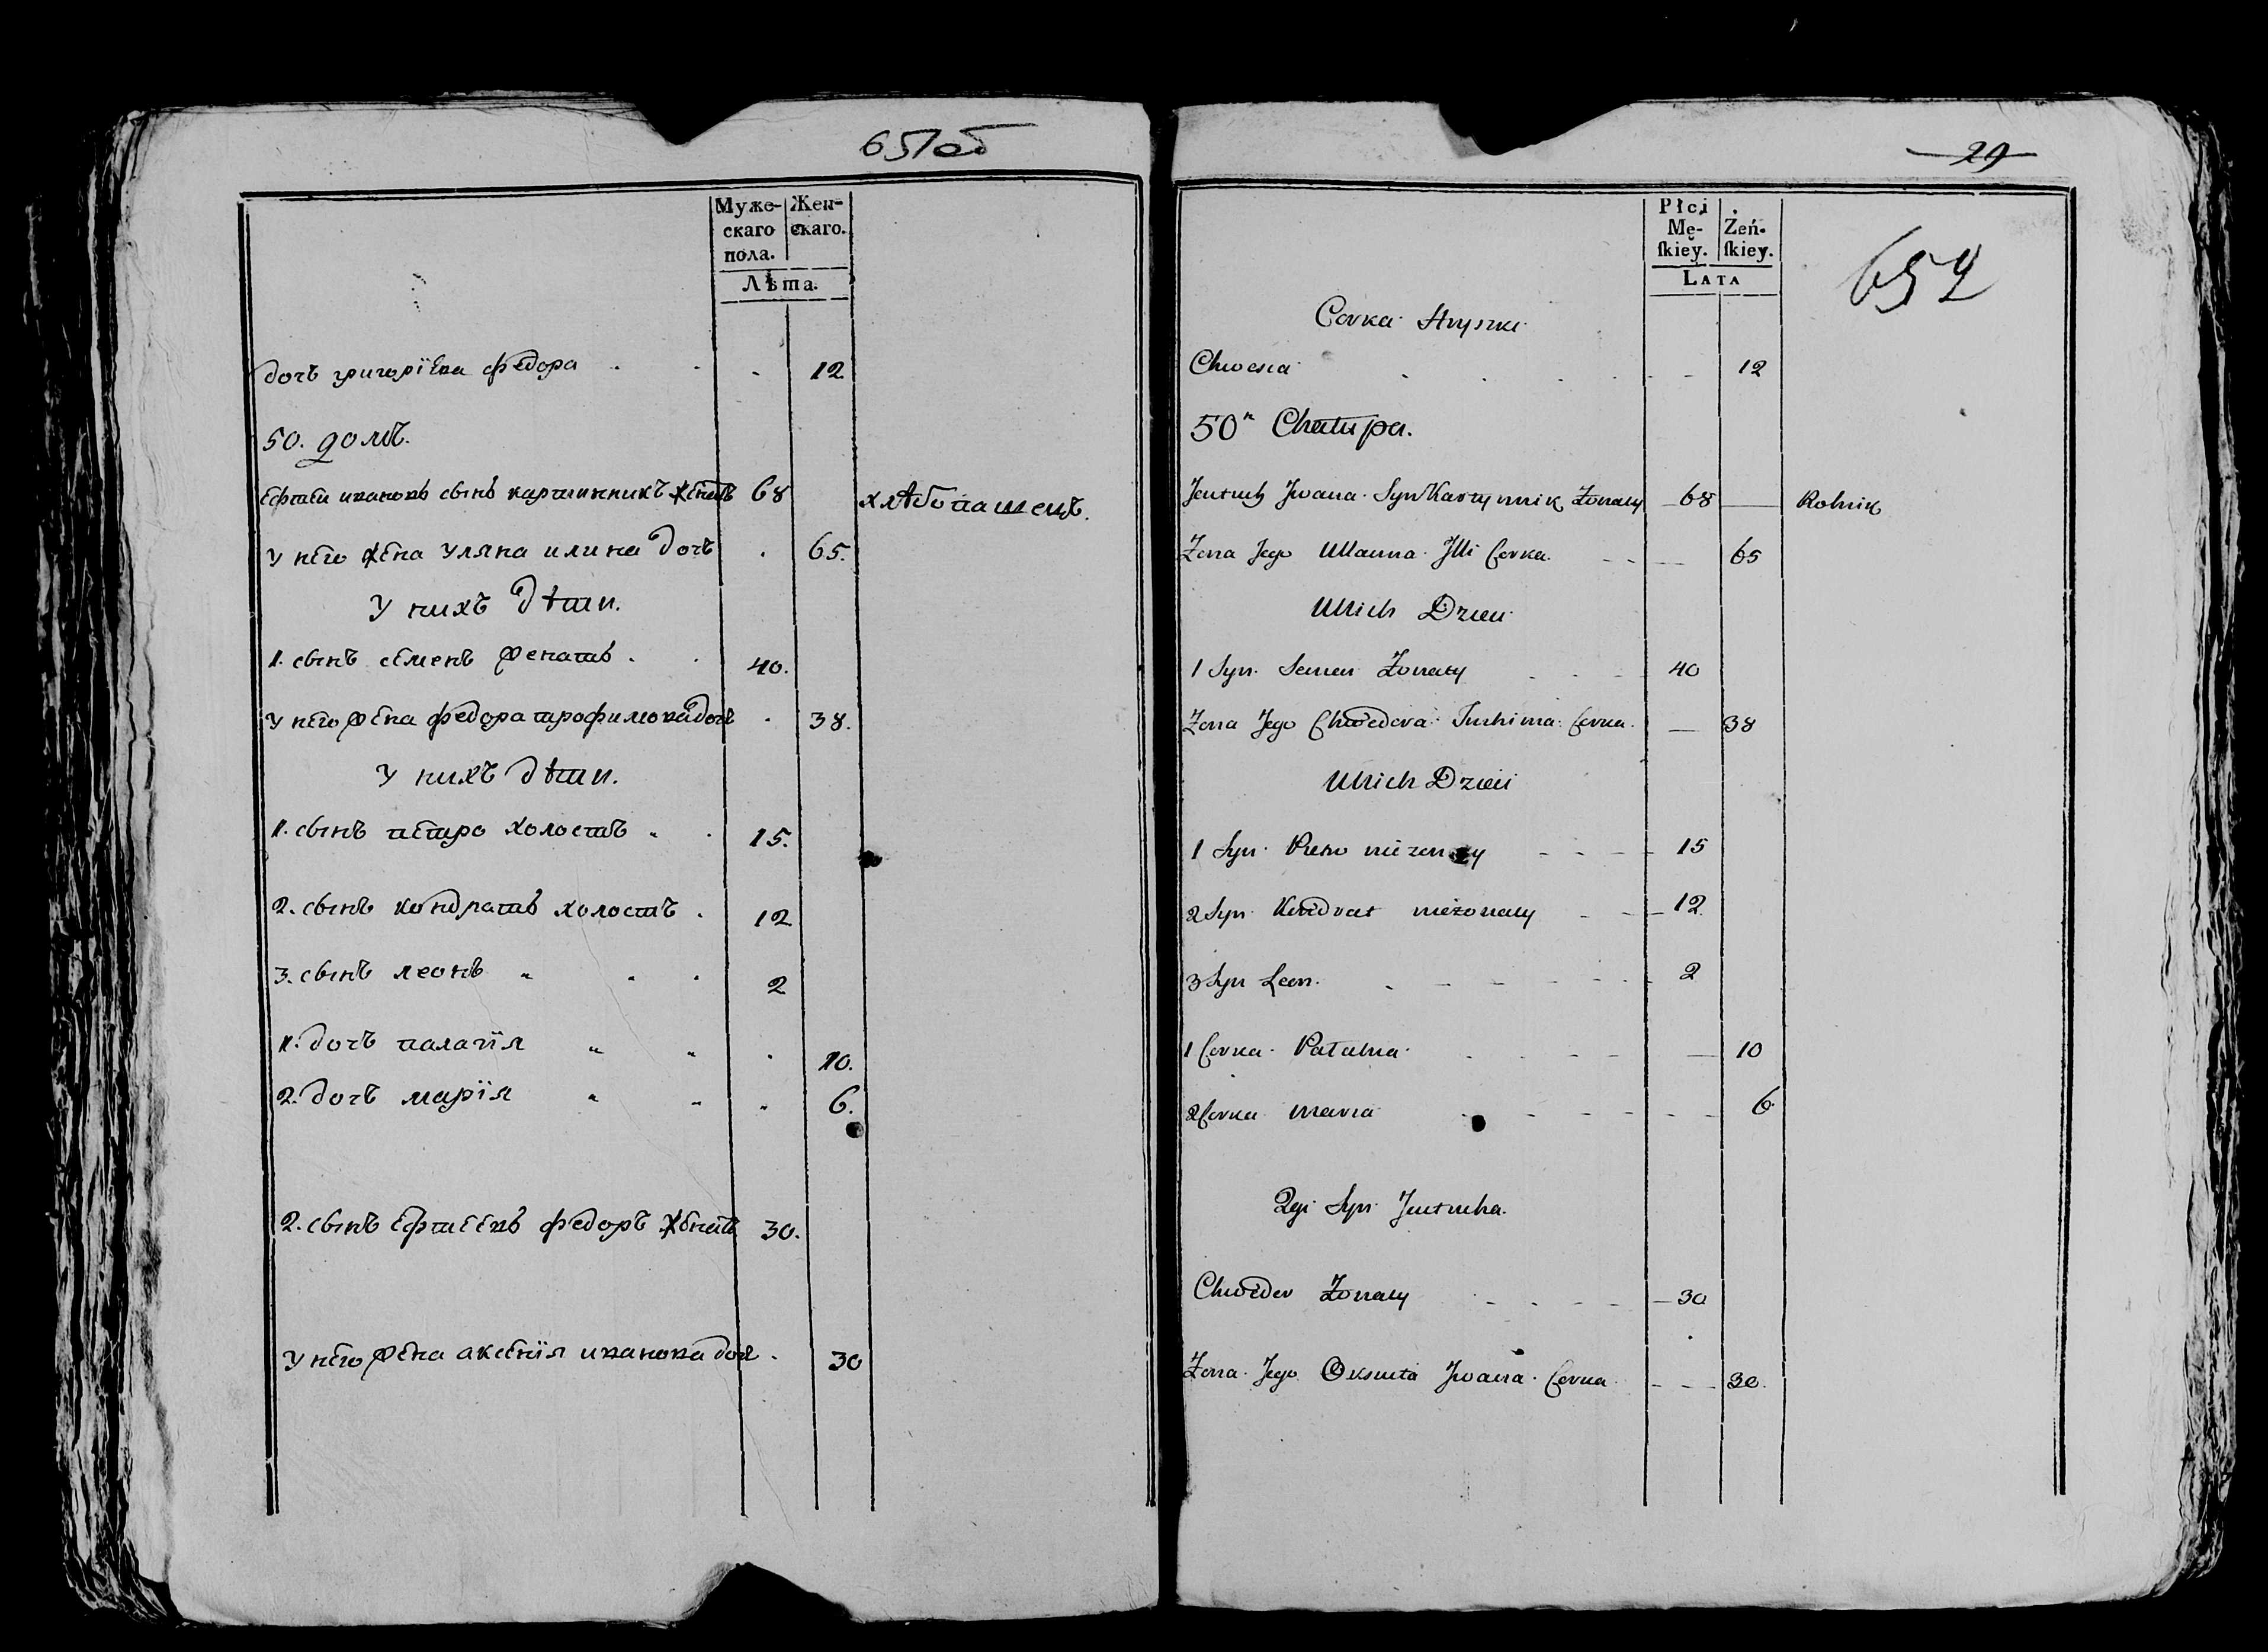 651об
Муже-
скаго
пола.
Жен-
скаго.
Лѣта.
дочъ григоріева федора 12
50. домъ.
Ефтей ивановъ сынъ картинникъ женатъ 68 хлѣбопашецъ.
у него жена уляна илина дочъ 65.
У нихъ дѣти.
1. сынъ семенъ женатъ 40.
у него жена федора трофимова дочъ 38.
У нихъ дѣти.
1. сынъ петро холостъ 15.
2. сынъ кондратъ холостъ 12
3. сынъ леонъ 2
1. дочъ палагія 10.
2. дочъ марія 6.
2. сынъ Ефтеевъ федоръ женатъ 30.
у него жена аксенія иванова дочъ 30
29
652
Płci
Mę-
ſkiey.
Żeń-
ſkiey.
LATA
Corka Hryszki
Chwesia 12
50ᵃ Chałupa.
Jwana Syn Żonaty 68 Rolnik
Żona Jego Ullanna Jlli Corka 65
U Nich Dzieci
1 Syn Semen Żonaty 40
Żona Jego Chwedora Corka 38
U Nich Dzieci
1 Syn Petro nieżonaty 15
2 Syn Kondrat nieżonaty 12
3 Syn Leon 2
1 Corka Pałahia 10
2 Corka Maria 6
2gi Syn Jeutucha
Chwedor Żonaty 30
Żona Jego Jwana Corka 30